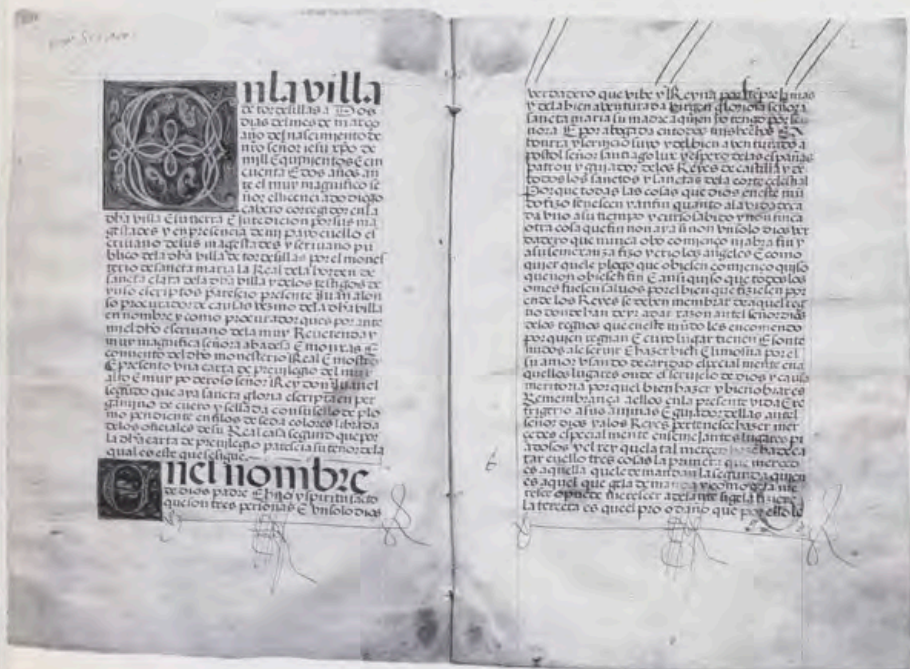 En la villa
de tordesillas a Dos
dias del mes de março
año del nascimento de
nro señor iesu xpo de
mill E quinientos E cin
cuenta E dos años an
te el muy magnifico se
ñor el licenciado diego
cabero corregidor en la
dha villa E su tierra E juredicion por sus ma
gestades y en presencia de mi payo cuello es
criuano de sus magestades y scriuano pu
blico de la dha villa de tordesillas por el mones
terio de sancta maria la Real de la horden de
sancta clara de la dha villa y de los testigos de
yuso escriptos parescio presente juan alon
so procurador de causas vezino de la dha villa
en nombre y como procurador que es por ante
mi el dho escriuano de la muy Reuerenda y
muy magnifica señora abadesa E monjas E
conuento del dho monesterio Real E mostro
E presento vna carta de preuilegio del muy
alto E muy poderoso señor Rey don Juan el
segundo que aya sancta gloria escripta en per
gamino de cuero y sellada con su sello de plo
mo pendiente en filos de seda colores librada
de los oficiales de su Real casa segund que por
la dha carta de preuilegio parescia su tenor de la
qual es este que se sigue
En el nombre
de dios padre E hijo y spiritu sancto
que son tres personas E vn solo dios
verdadero que vibe y Reyna por siempre jamas
y de la bien abenturada virgen gloriosa señora
sancta maria su madre a quien yo tengo por se
ñora E por abogada en todos mis hechos E A
honrra y seruicio suyo y del bien abenturado a
postol señor santiago luz y espejo de las españas
patron y guiador de los Reyes de castilla y de
todos los sanctos y sanctas de la corte celestial
Porque todas las cosas que dios en este mu
do fizo fenescen y an fin quanto a la vida de ca
da vno a su tiempo y curso sabido y non finca
otra cosa que fin non aya si non vn solo dios ver
dadero que nunca obo comienço ni abra fin y
a su semejança fizo y crio los angeles E como
quier que le plogo que obiesen comienço quiso
que non obiesen fin E ansi quiso que todos los
omes fuesen saluos por el bien que fiziesen por
ende los Reyes se deben membrar de aquel reg
no donde han de yr a dar razon ante el señor dios
de los regnos que en este mudo les encomendo
por quien regnan E cuio lugar tienen E son te
nudos a le seruir E hazer bien E limosna por el
su amor vsando de caridad especial mente en a
quellos lugares onde es seruicio de dios y causa
meritoria por quel bien hazer y bien obrar es
Remembrança a ellos en la presente vida E re
frigerio a sus animas E guiador dellas ante el
señor dios y a los Reyes pertenesce hazer mer
cedes especial mente en semejantes lugares pi
adosos y el rey que la tal merced haze ha de ca
tar en ello tres cosas la primera que merced
es aquella que le demandan la segunda quien
es aquel que gela demanda y como gela me
resce o puede merescer adelante si gela fiziere
la tercera es que es el pro o daño que por ello le